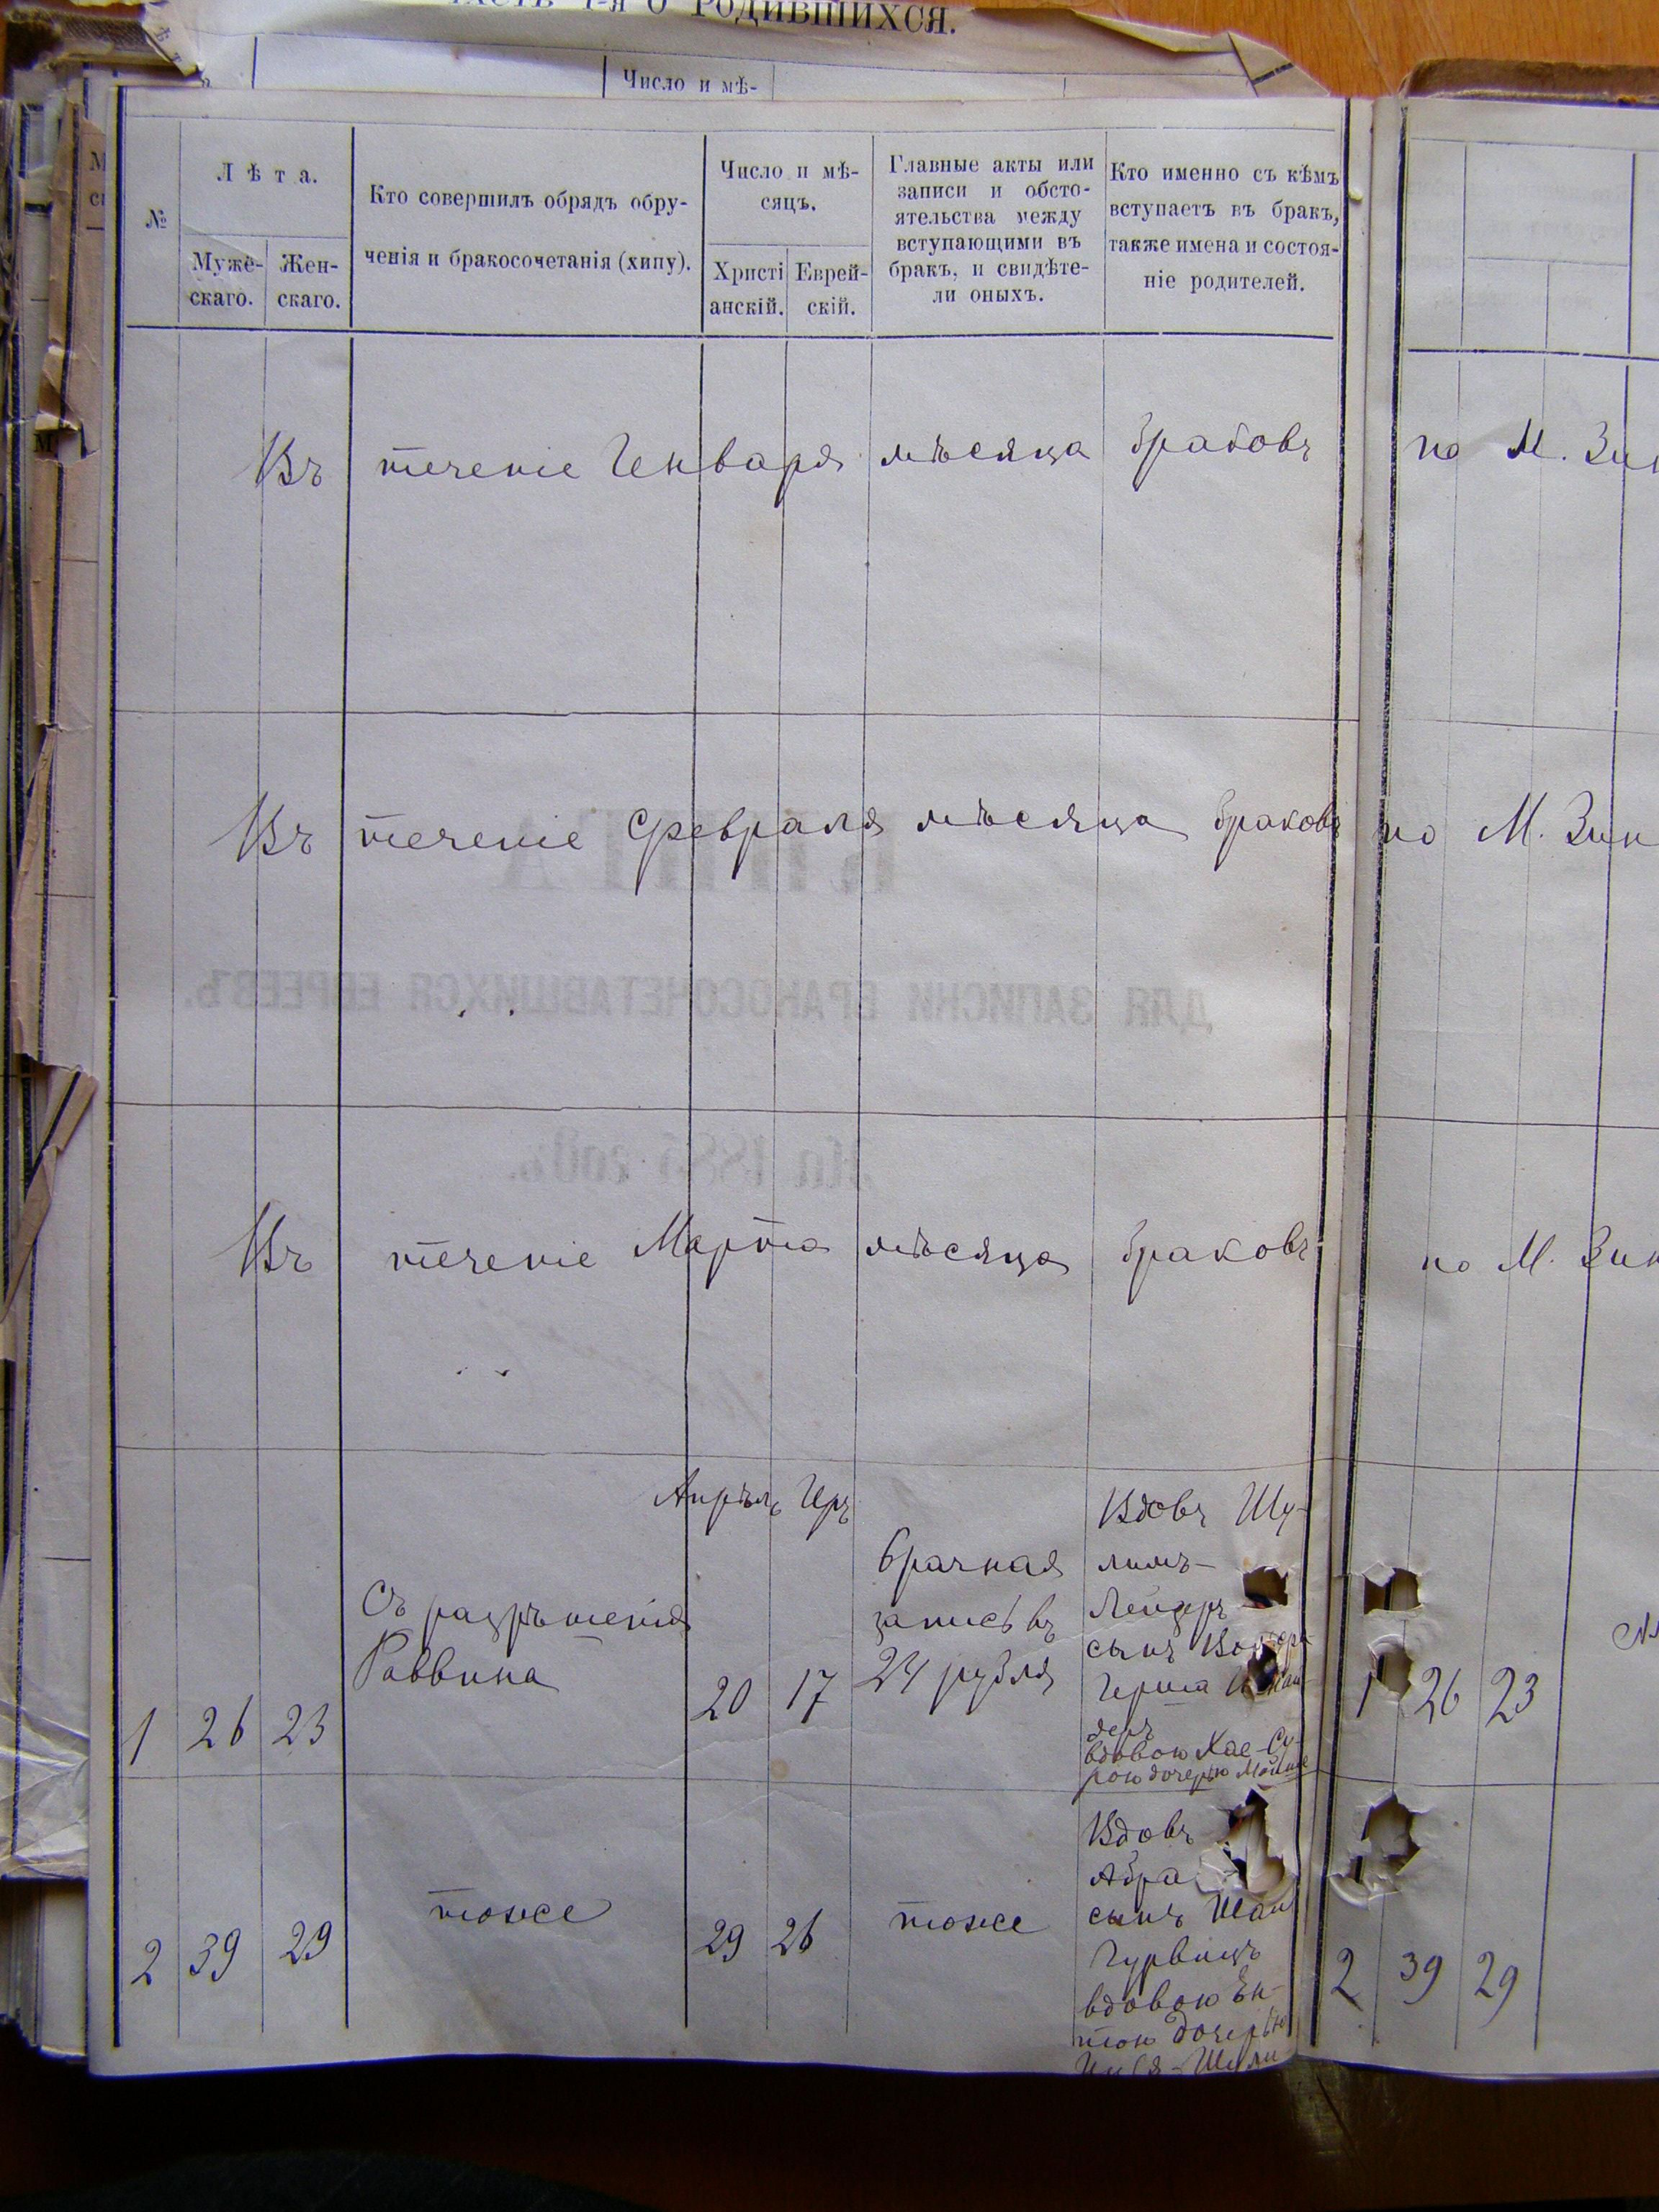 О РОДИВШИХСЯ.
Число и мѣ-
№
Лѣта.
Муже-
скаго.
Жен-
скаго.
Кто совершилъ обрядъ обру-
ченія и бракосочетанія (хипу).
Число и мѣ-
сяцъ.
Христі
анскій.
Еврей-
скій.
Главные акты или
записи и обсто-
ятельства между
вступающими въ
бракъ, и свидѣте-
ли оныхъ.
Кто именно съ кѣмъ
вступаетъ въ бракъ,
также имена и состоя-
ніе родителей.
Въ теченіе Генваря мѣсяца браковъ по М. Зин
Въ теченіе Февраля мѣсяца браковъ по М. Зин
Въ теченіе Марта мѣсяца браковъ по М. Зин
1
26
23
Съ разрѣшенія
Раввина
Апрѣль
20
Иръ
17
брачная
запись въ
24 рубля
Вдовъ Шу-
лимъ-
Лейзеръ
сынъ
Герша
деръ
вдовою Хае-Су-
рою дочерью Мойше
1
26
23
2
39
29
тоже
29
26
тоже
Вдовъ
Абра
сынъ
Гурвицъ
вдовою Ен-
тою дочерью
2
39
29
КНИГА
ДЛЯ ЗАПИСКИ БРАКОСОЧЕТАВШИХСЯ ЕВРЕЕВЪ.
На 1885 годъ.